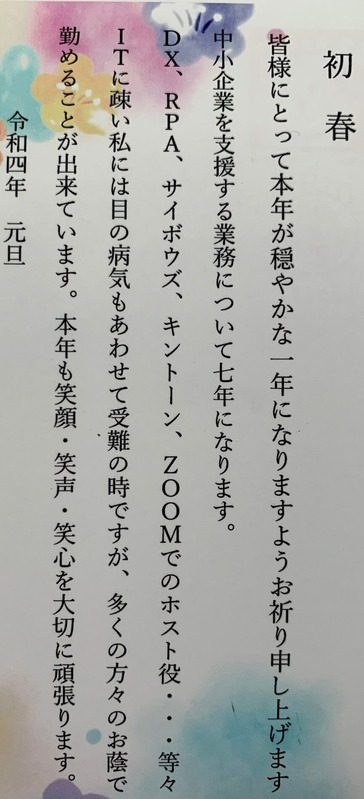 初春
皆様にとって本年が穏やかな一年になりますようお祈り申し上げます
中小企業を支援する業務について七年になります。
DX、RPA、サイボウズ、キントーン、ZOOMでのホスト役・・・等々
ITに疎い私には目の病気もあわせて受難の時ですが、多くの方々のお蔭で
勤めることが出来ています。本年も笑顔・笑声・笑心を大切に頑張ります。
令和四年 元旦